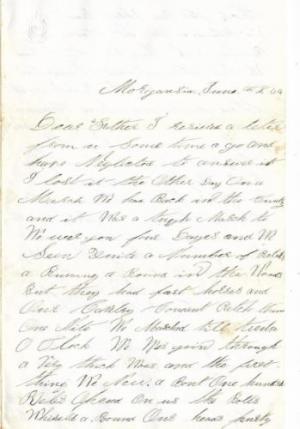 Morganzia, June
Dear Father I received a letter
from u Some time a go and
have Neglected to answer it
I lost it the Other Day On a
March We has Back in the
and it Was a tugh March to
We wer gon five Dayes and We
Seen Quite a Number of
a Runing a Round in the Woods
But they had fast horses and
Our Cavlry Couldent Catch them
One Nate We Marched till
O Clock We Was goin through
a Very thick Woods and the first
thing We New a Bout One hundred
Rifles Opend On us the Balls
Whisseld a Round Our heads purty